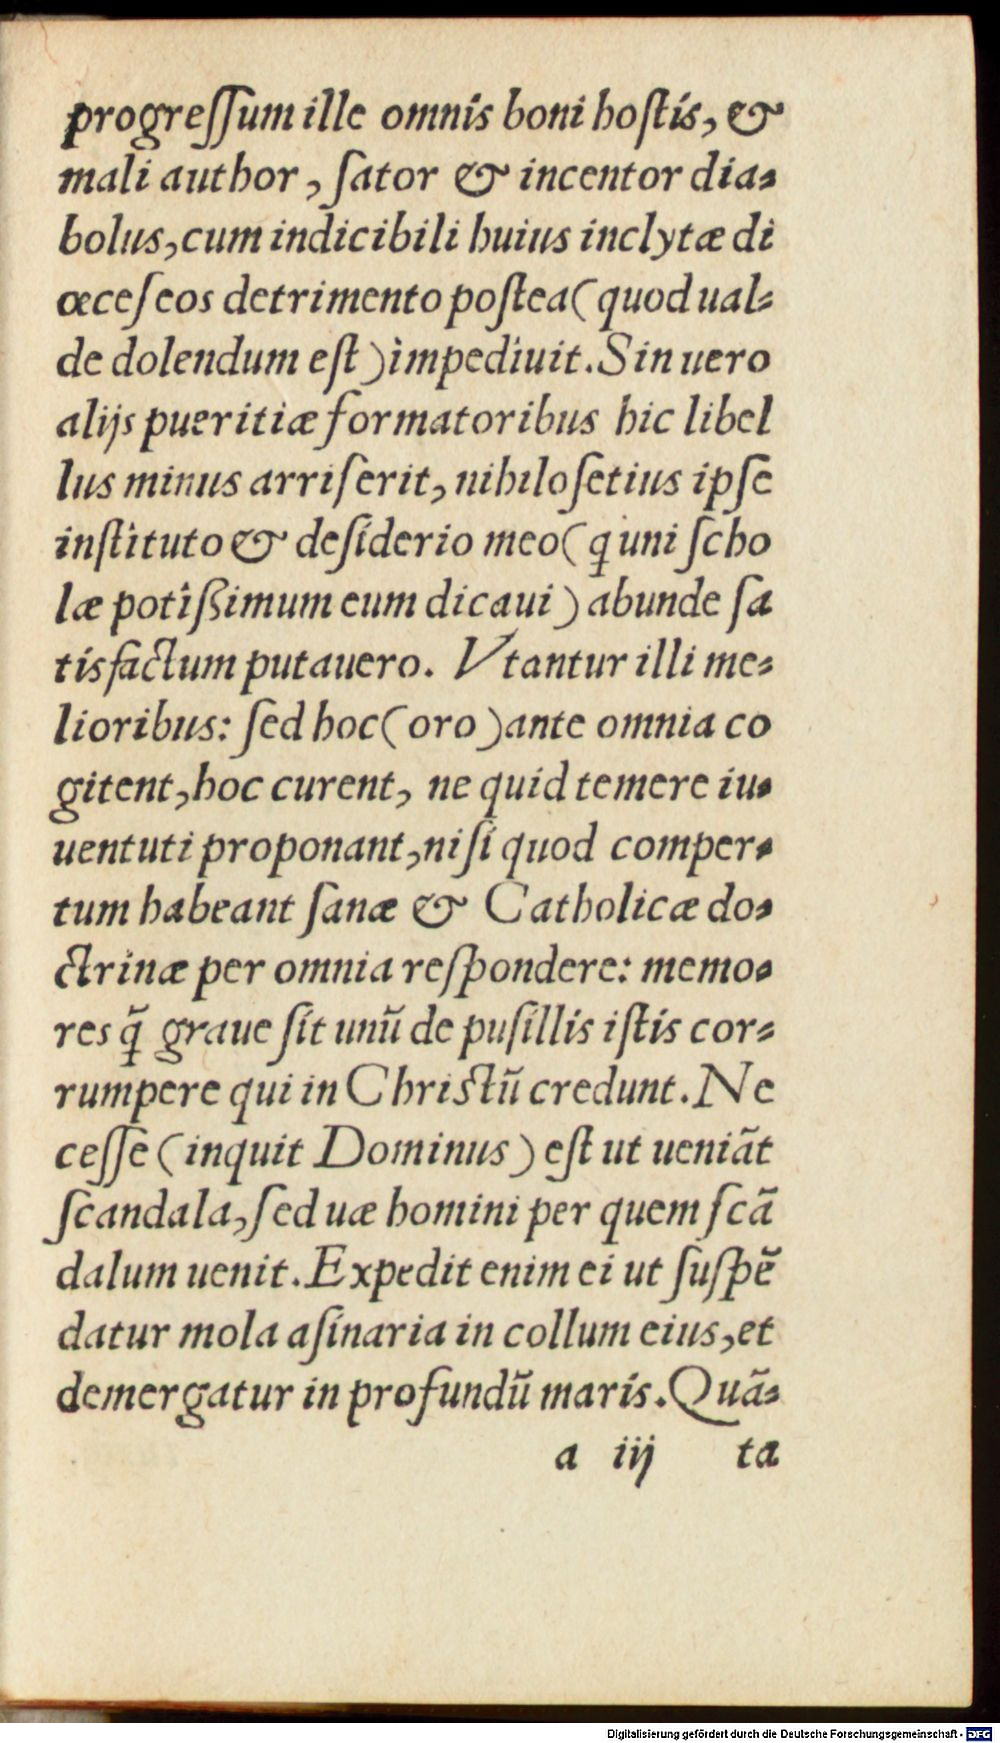 progreſſum ille omnis boni hoſtis, &
mali author, ſator & incentor dia-
bolus, cum indicibili huius inclytæ di
œceſeos detrimento poſtea (quod ual-
de dolendum eſt) impediuit. Sin uero
alijs pueritiæ formatoribus hic libel
lus minus arriſerit, nihiloſetius ipſe
inſtituto & deſiderio meo (q̣ uni ſcho
læ potißimum eum dicaui) abunde ſa
tisfactum putauero. Vtantur illi me-
lioribus: ſed hoc (oro) ante omnia co
gitent, hoc curent, ne quid temere iu-
uentuti proponant, niſi quod comper-
tum habeant ſanæ & Catholicæ do-
ctrinæ per omnia reſpondere: memo-
res q̃ graue ſit unũ de puſillis iſtis cor-
rumpere qui in Chriſtũ credunt. Ne
ceſſe (inquit Dominus) eſt ut ueniãt
ſcandala, ſed uæ homini per quem ſcã
dalum uenit. Expedit enim ei ut ſuſpẽ
datur mola aſinaria in collum eius, et
demergatur in profundũ maris. Quã-
a iij ta
Digitalisierung gefördert durch die Deutsche Forschungsgemeinschaft - DFG